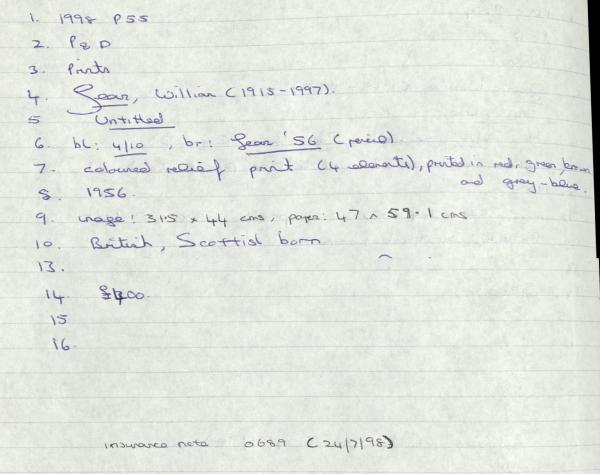 1. 1998 PSS
2. P & D
3. Prints
4. Gear, William (1915-1997).
5 Untitled
6. bl: 4/10, br: Gear '56 (pencil)
7. coloured relief print (4 elements), printed in red, green, brown
and grey-blue.
8. 1956.
9. image: 31.5 x 44 cms, paper: 47 x 59.1 cms
10. British, Scottish born
13.
14. £400.
15
16.
insurance note 0689 (24/7/98)